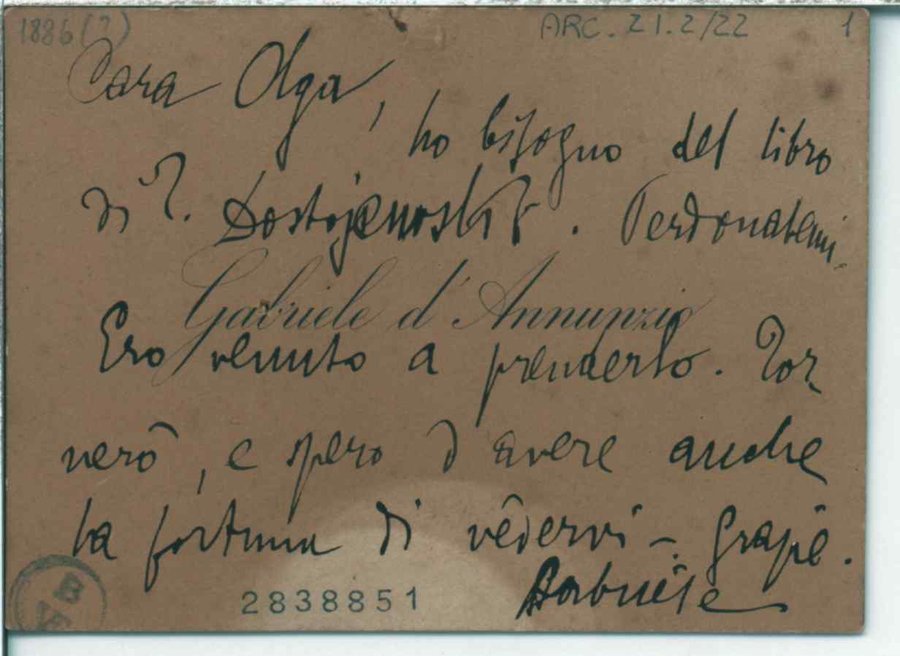 1886(?)
ARC. 21.2/22 1
Cara Olga,
ho bisogno del libro
di T. Dostojewski. Perdonatemi.
Gabriele d'Annunzio
Ero venuto a prenderlo. Tor-
nerò, e spero d'avere anche
la fortuna di vedervi – Grazie.
2838851